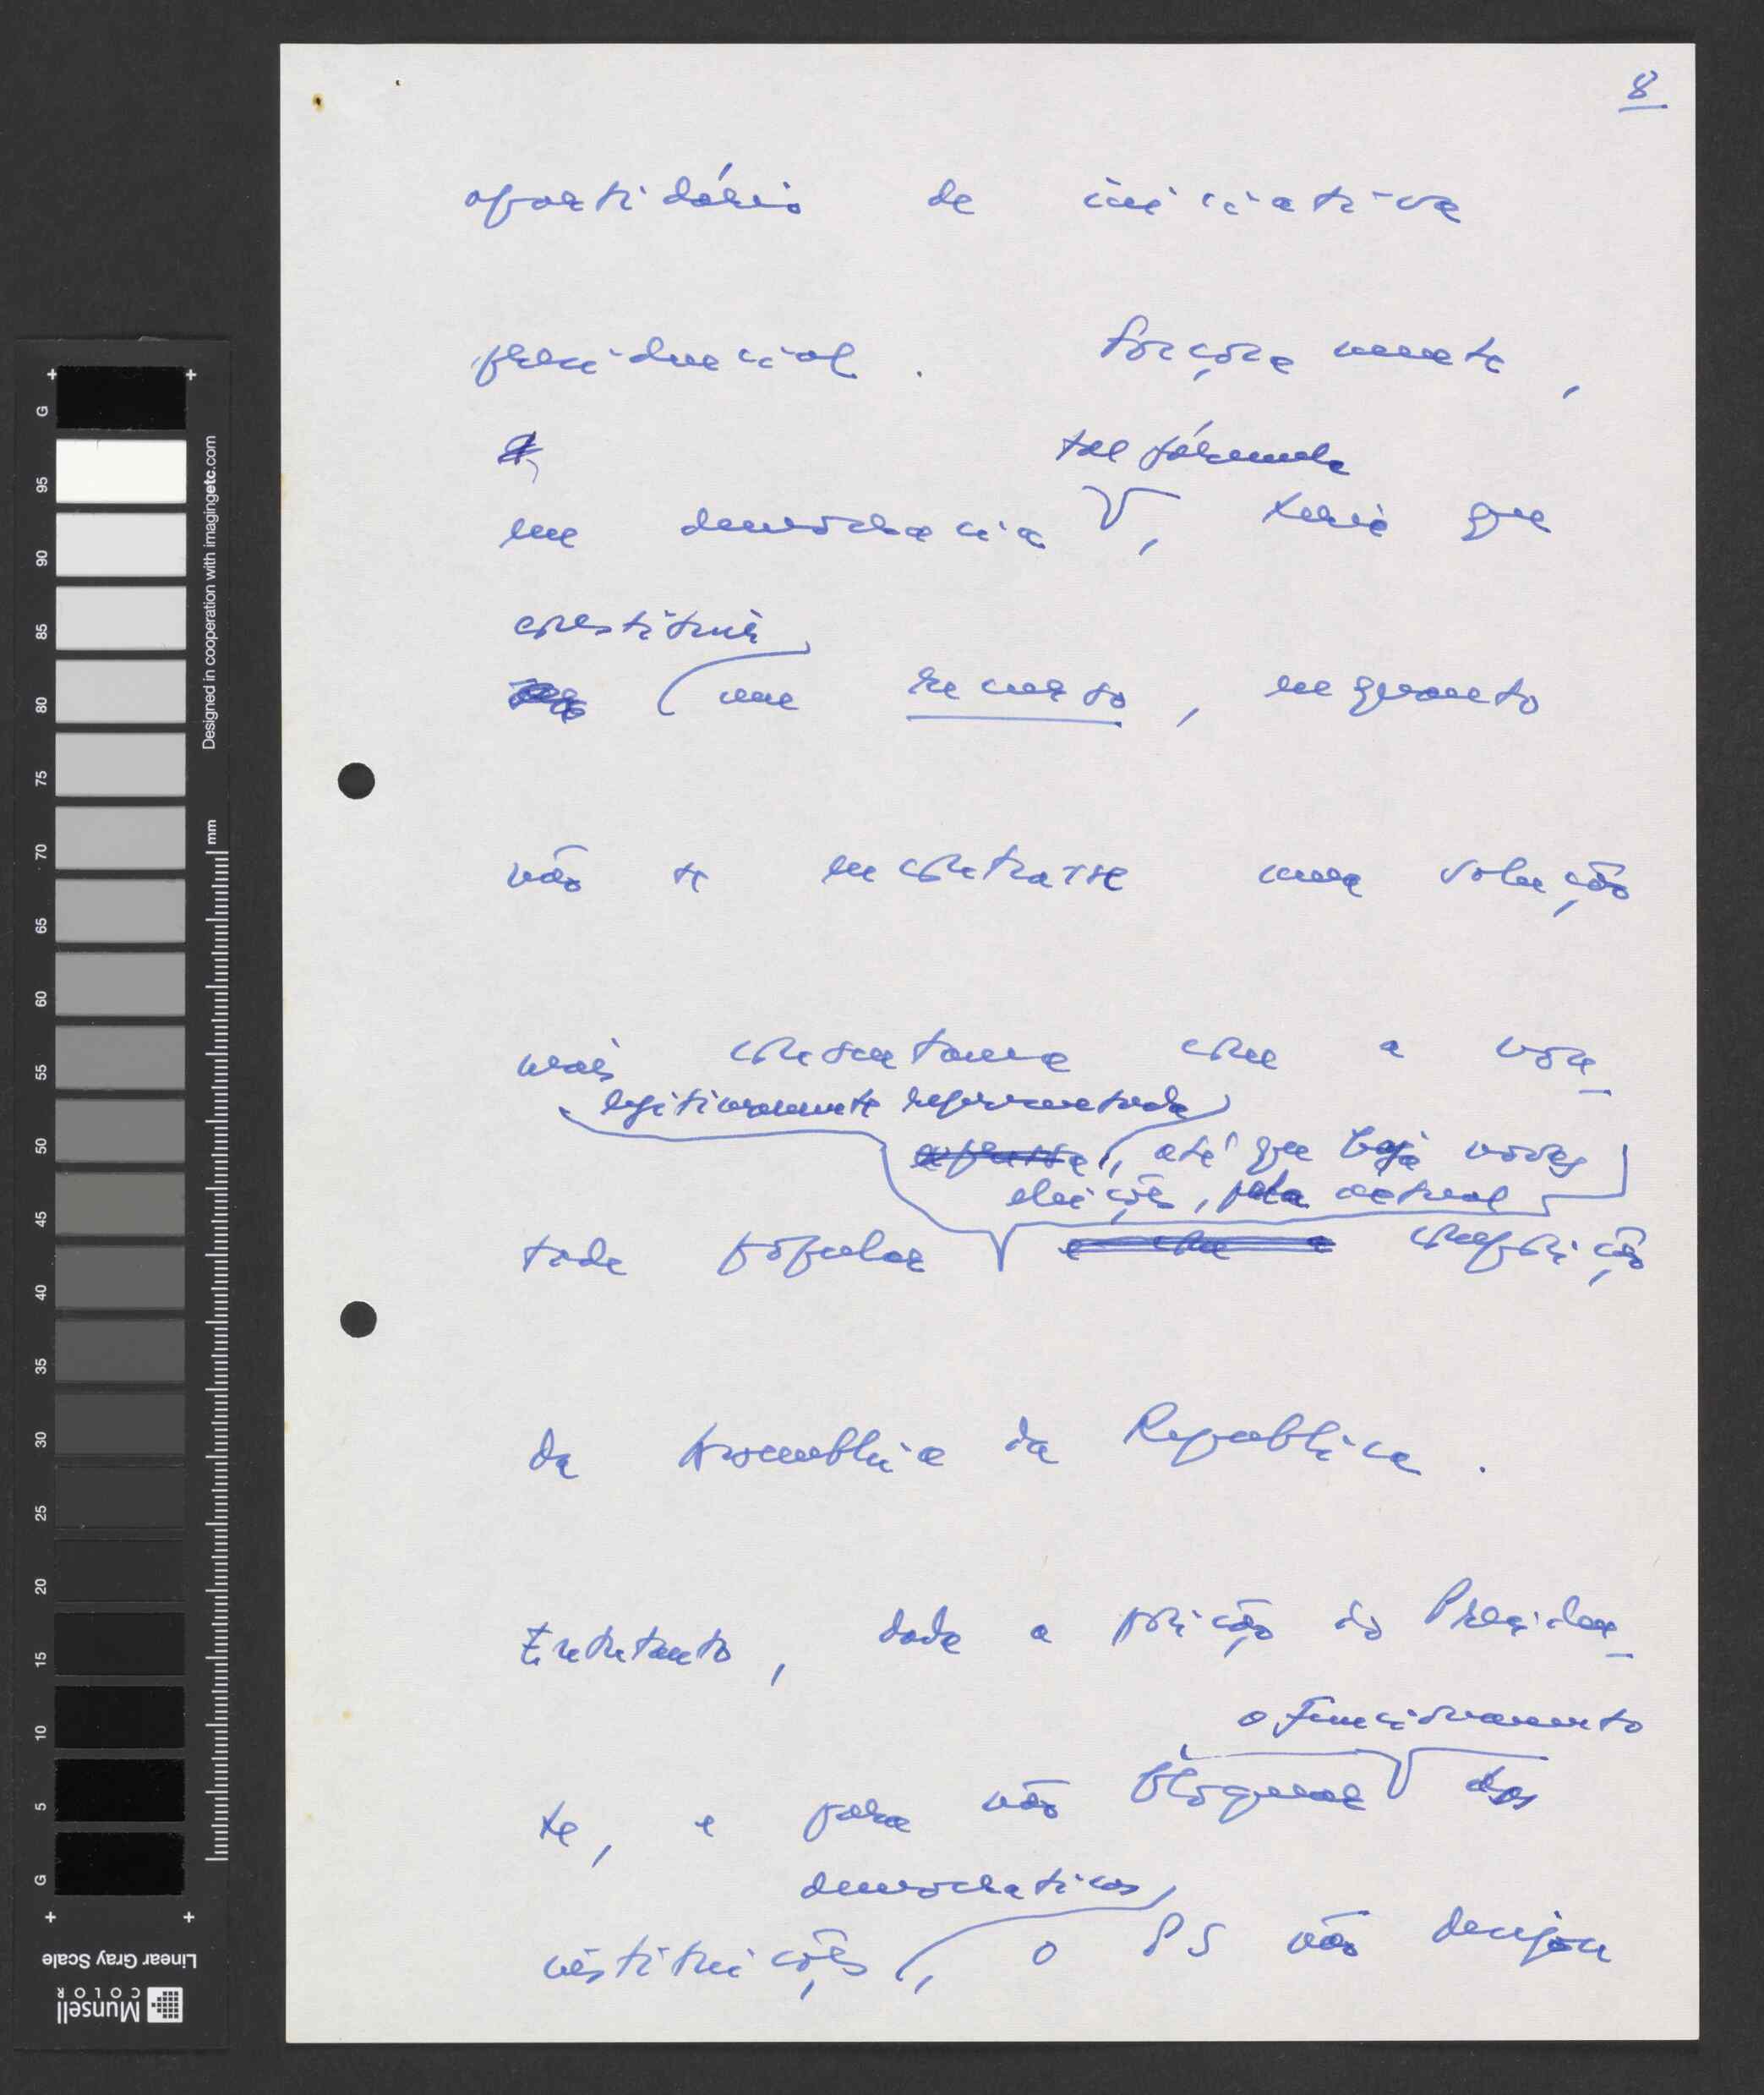 8
apartidário de iniciativa
presidencial. Forçosamente,
tal fórmula
em democracia, teria que
constituir
um recurso, enquanto
não se encontrasse uma solução
mais consentanea com a von-
legitimamente representada
expressa, até que haja novas
eleições, pela actual
tade popular e com a composição
da Assembleia da Republica.
Entretanto, dada a posição do Presiden-
o funcionamento
te, e para não bloquear das
democraticas
instituições, o PS não desejou
G
95
90
85
80
75
70
65
60
55
50
45
40
35
30
25
20
15
10
5
G
Designed in cooperation with imagingetc.com
mm
Linear Gray Scale
Munsell
COLOR